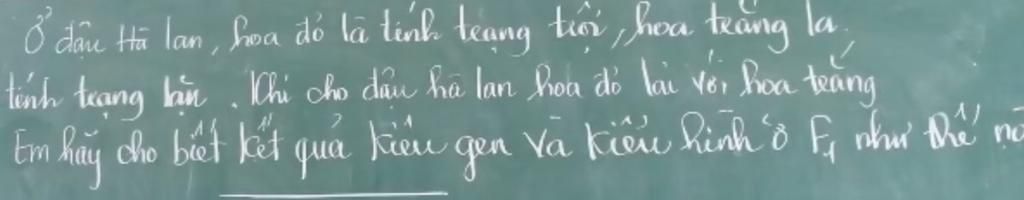 Ở đậu Hà lan, hoa đỏ là tính trạng trội, hoa trắng là
tính trạng lặn. Khi cho đậu hà lan hoa đỏ lai với hoa trắng
Em hãy cho biết kết quả kiểu gen và kiểu hình ở F1 như thế